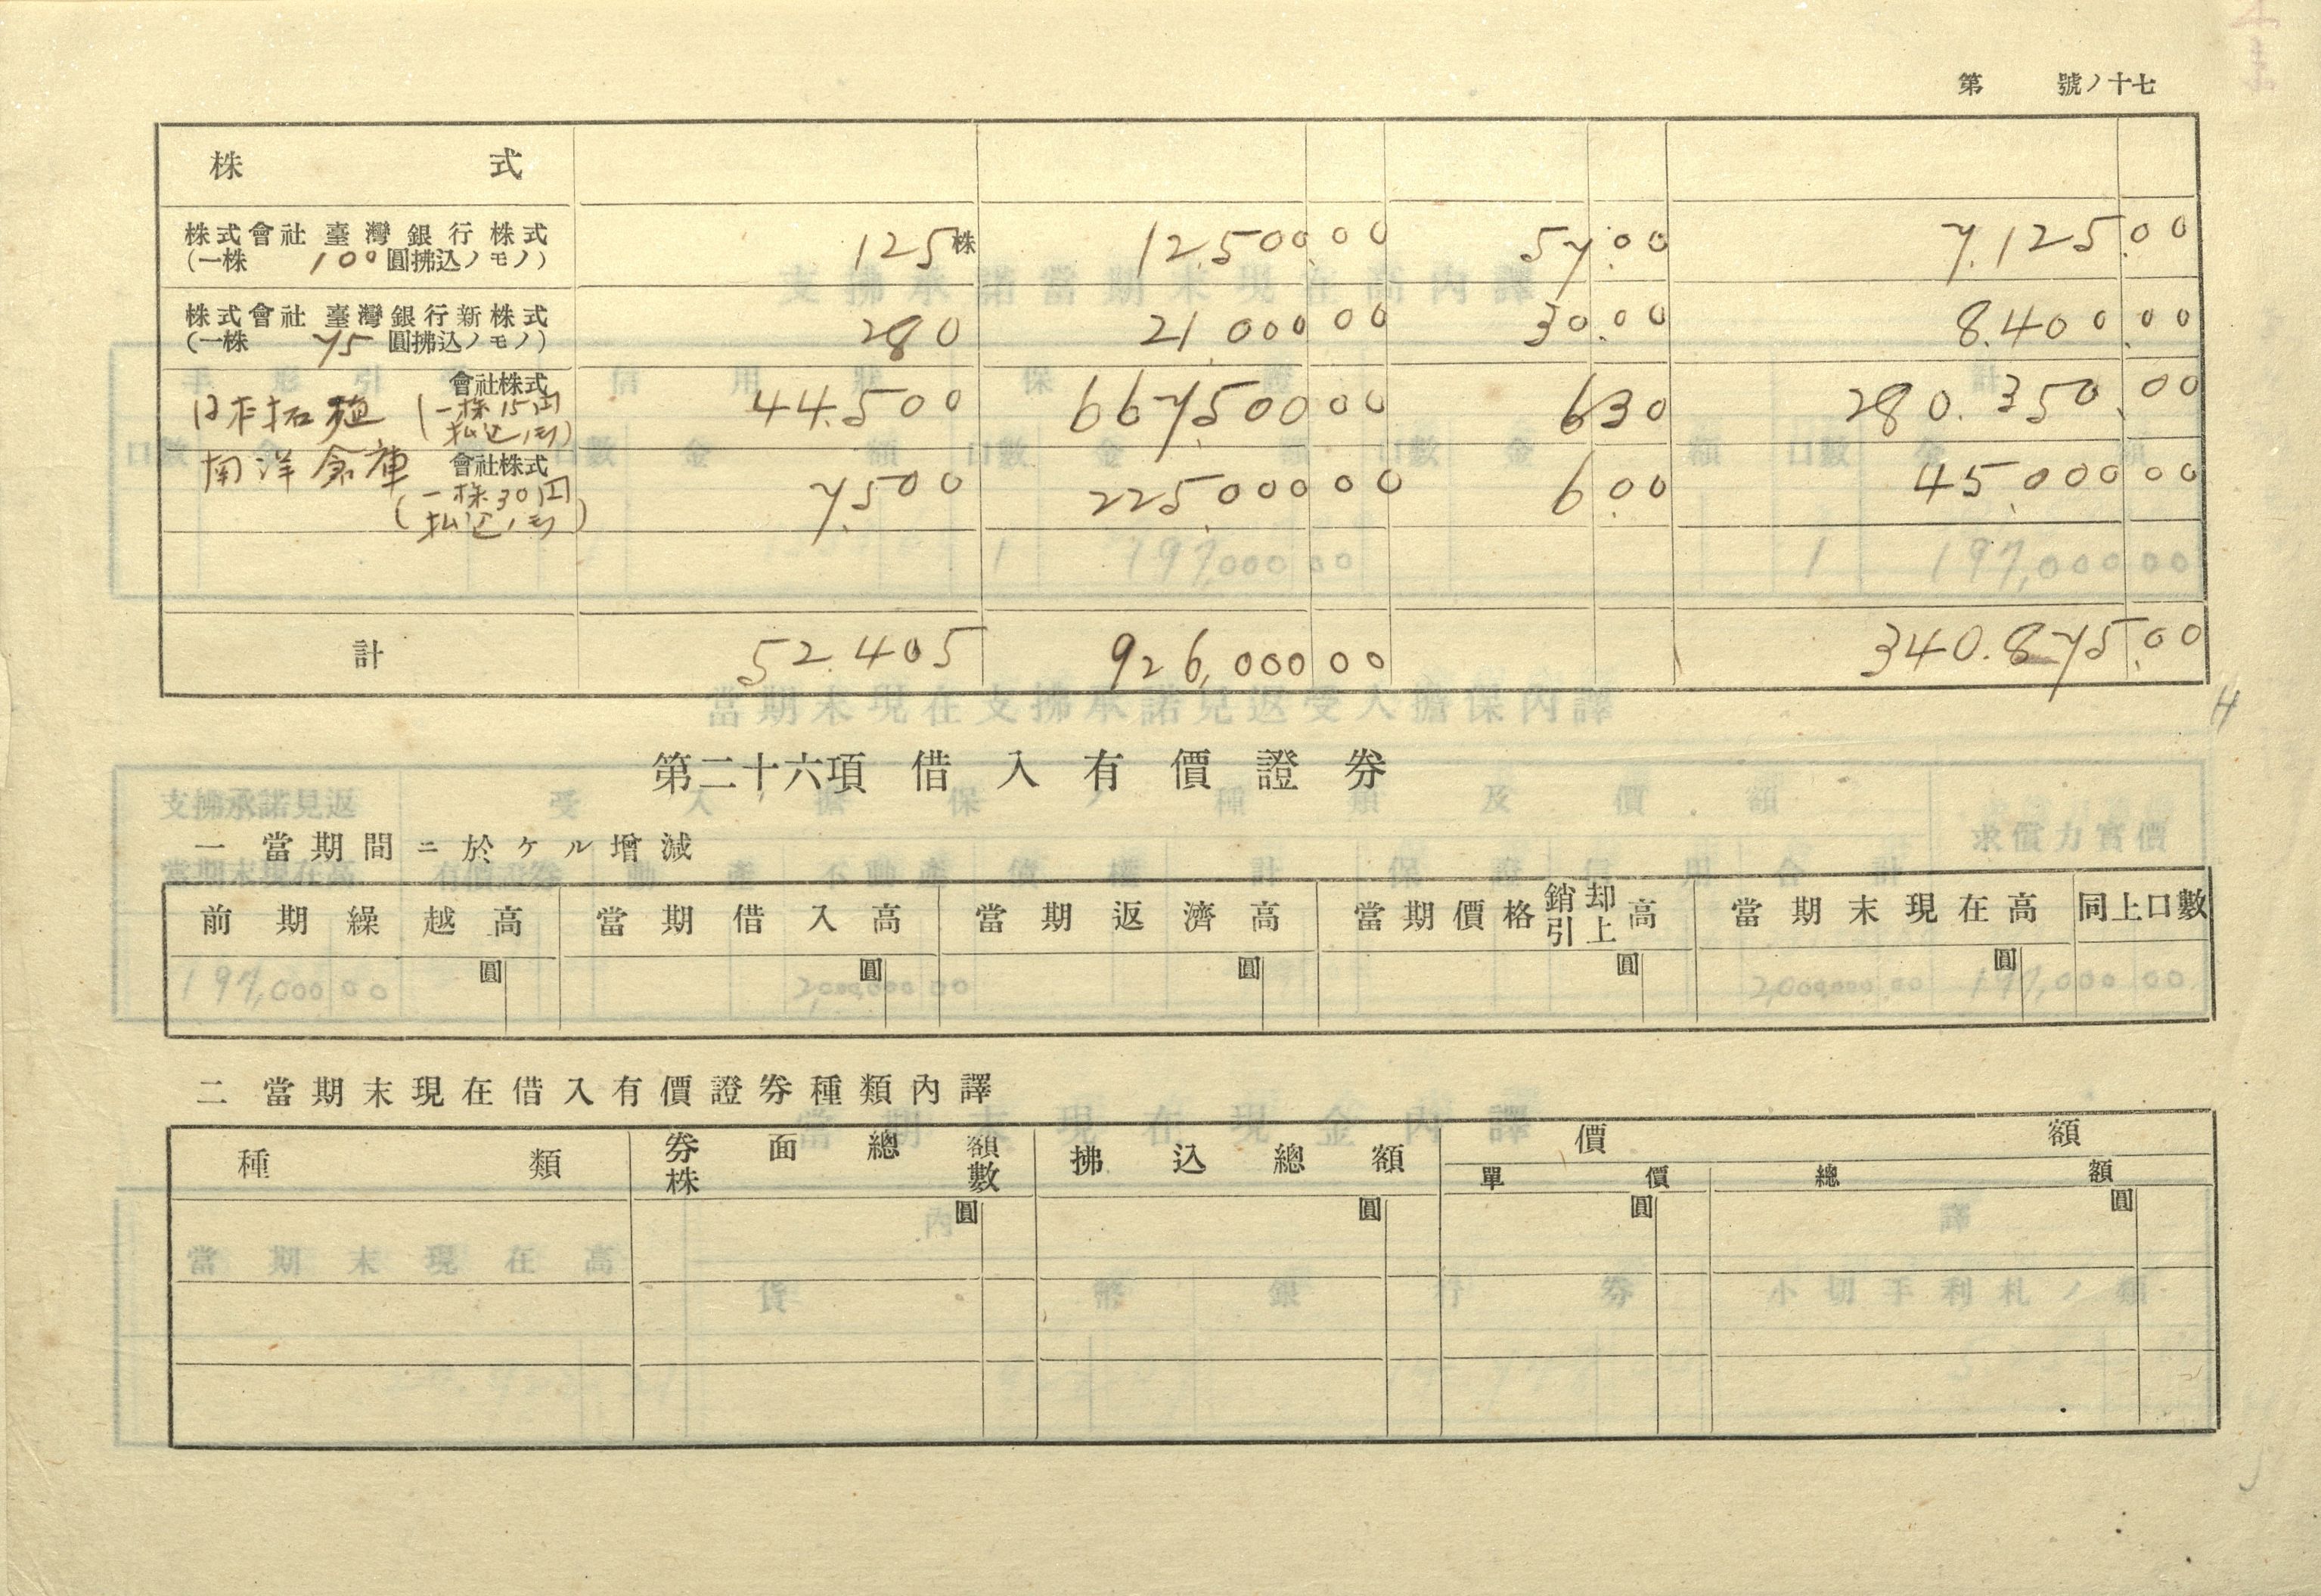 第　號ノ十七
株式
株式會社臺灣銀行株式 125株 12,500 00 57.00 7,125.00
(一株100圓拂込ノモノ)
株式會社臺灣銀行新株式 280 21,000 00 30.00 8,400.00
(一株75圓拂込ノモノ)
日本拓殖 會社株式 44,500 667,500 00 630 280.350.00
(一株15円
払込ノモノ)
南洋倉庫 會社株式 7,500 225,000 00 6.00 45,000 00
(一株30円
払込ノモノ)
計 52.405 926,000 00 340.875.00
第二十六項 借入有價證券
一 當期間ニ於ケル增減
前期繰越高 當期借入高 當期返濟高 當期價格銷却引上高 當期末現在高 同上口數
圓 圓 圓 圓 圓
二 當期末現在借入有價證券種類內譯
種類 券面總額 株數 拂込總額 價額
單價 總額
圓 圓 圓 圓